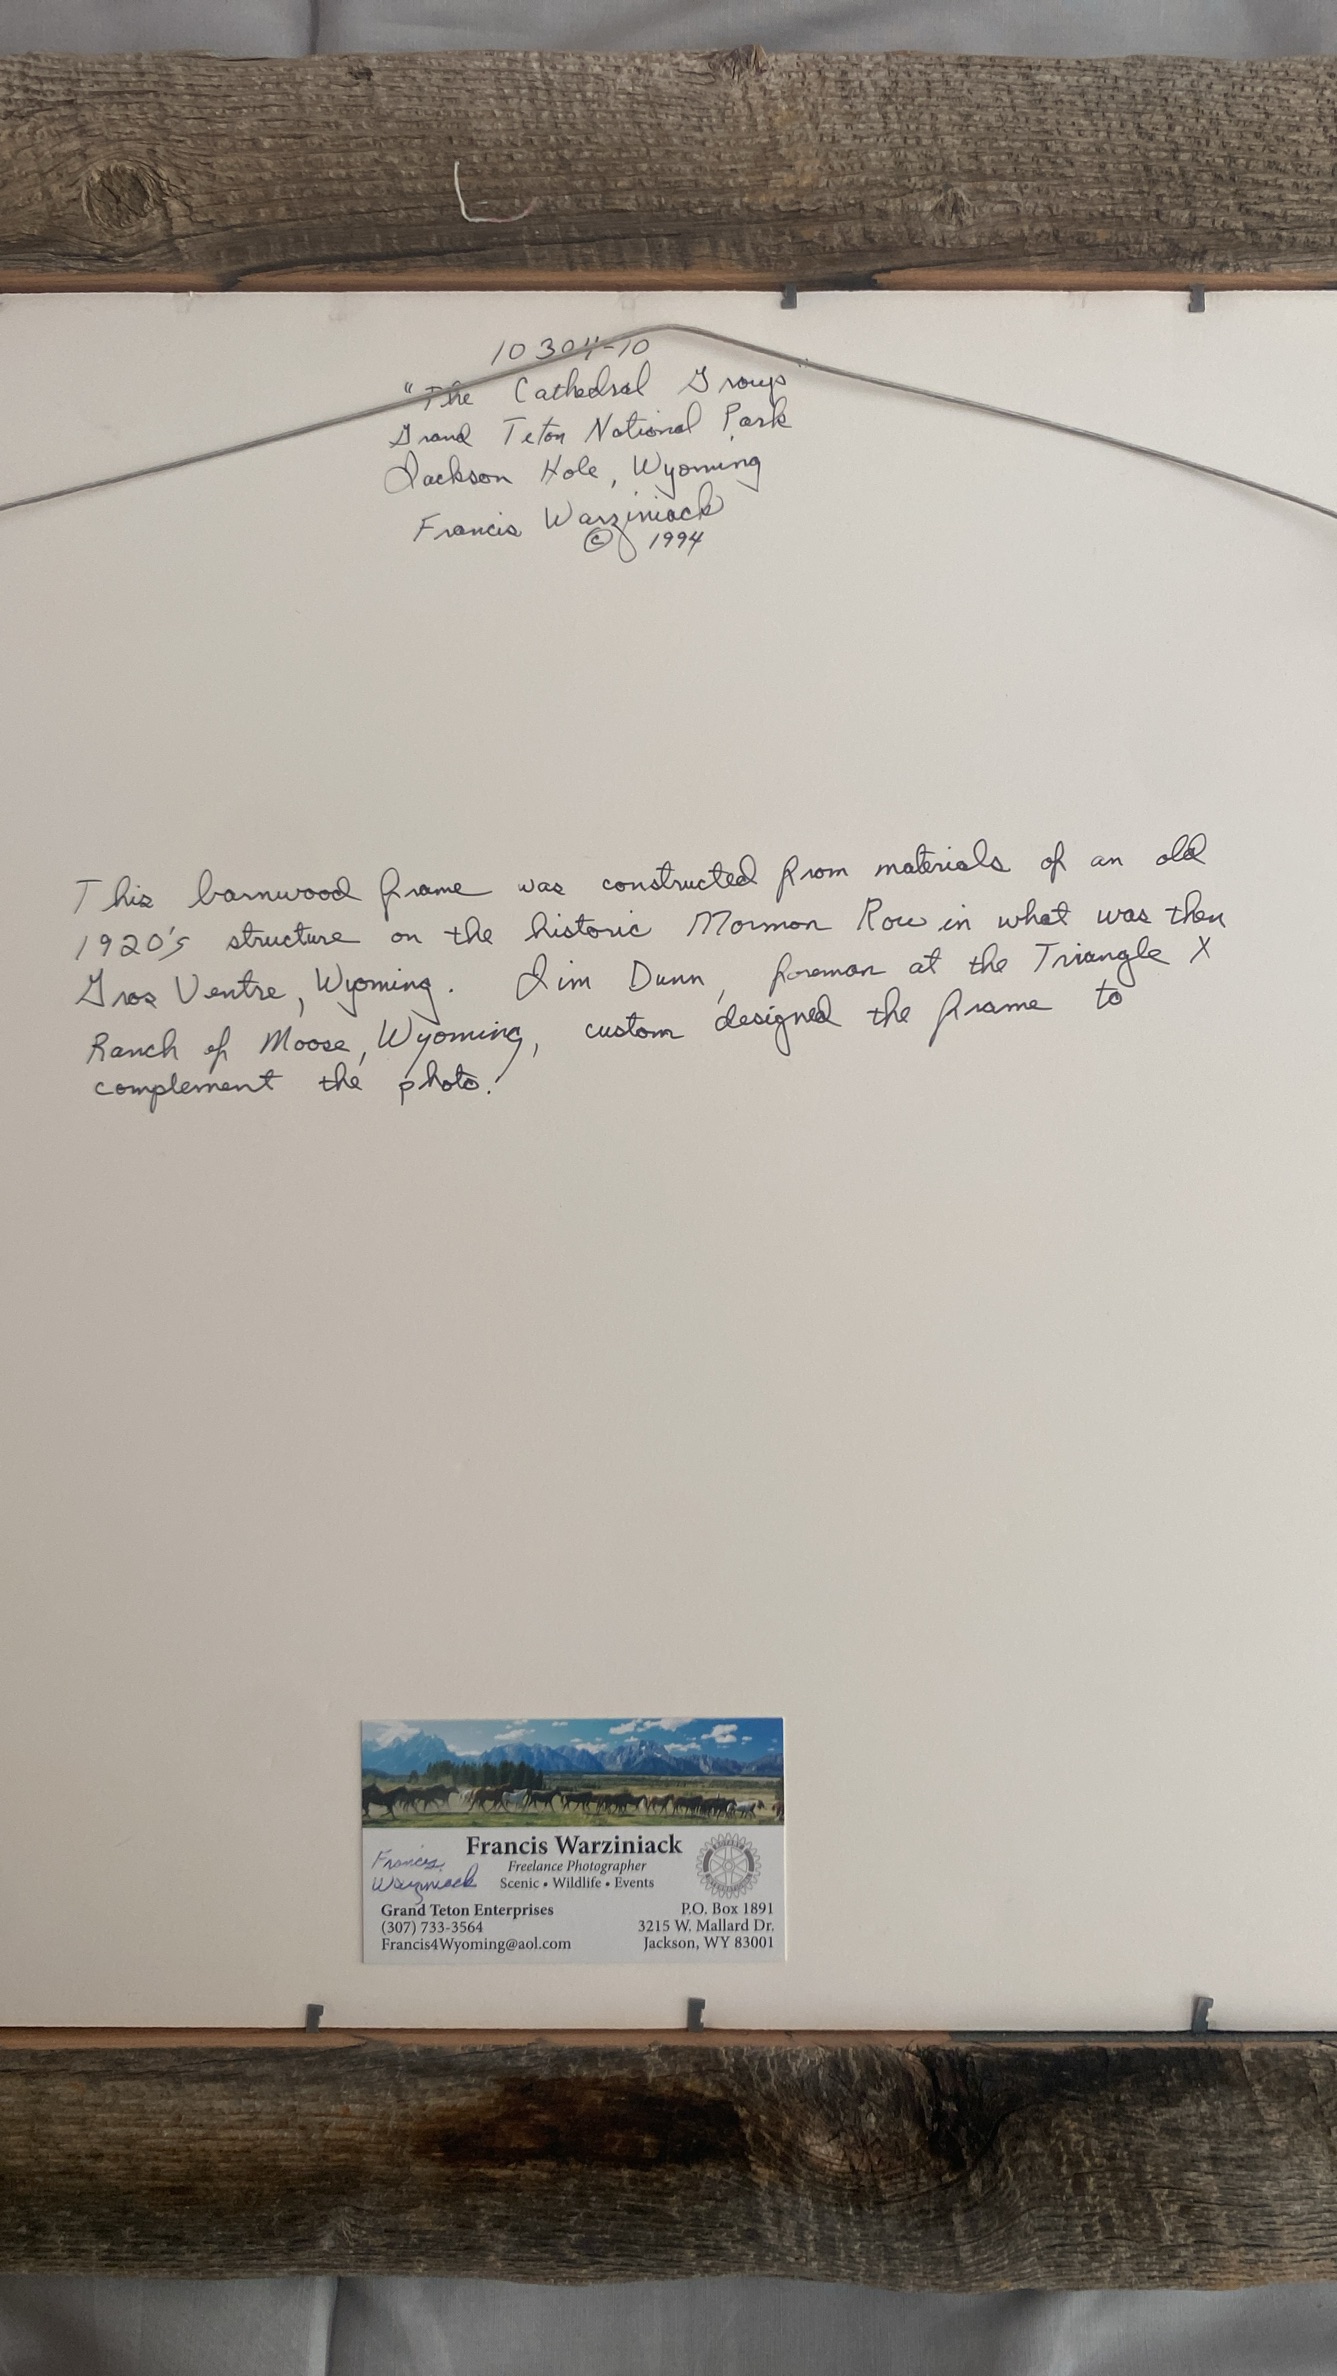 10304-10
"The Cathedral Group"
Grand Teton National Park
Jackson Hole, Wyoming
Francis Warziniack
© 1994
This barnwood frame was constructed from materials of an old
1920's structure on the historic Mormon Row in what was then
Gros Ventre, Wyoming. Jim Dunn, foreman at the Triangle X
Ranch of Moose, Wyoming, custom designed the frame to
complement the photo.
Francis Warziniack
Freelance Photographer
Scenic • Wildlife • Events
Francis
Warziniack
Grand Teton Enterprises
(307) 733-3564
Francis4Wyoming@aol.com
P.O. Box 1891
3215 W. Mallard Dr.
Jackson, WY 83001